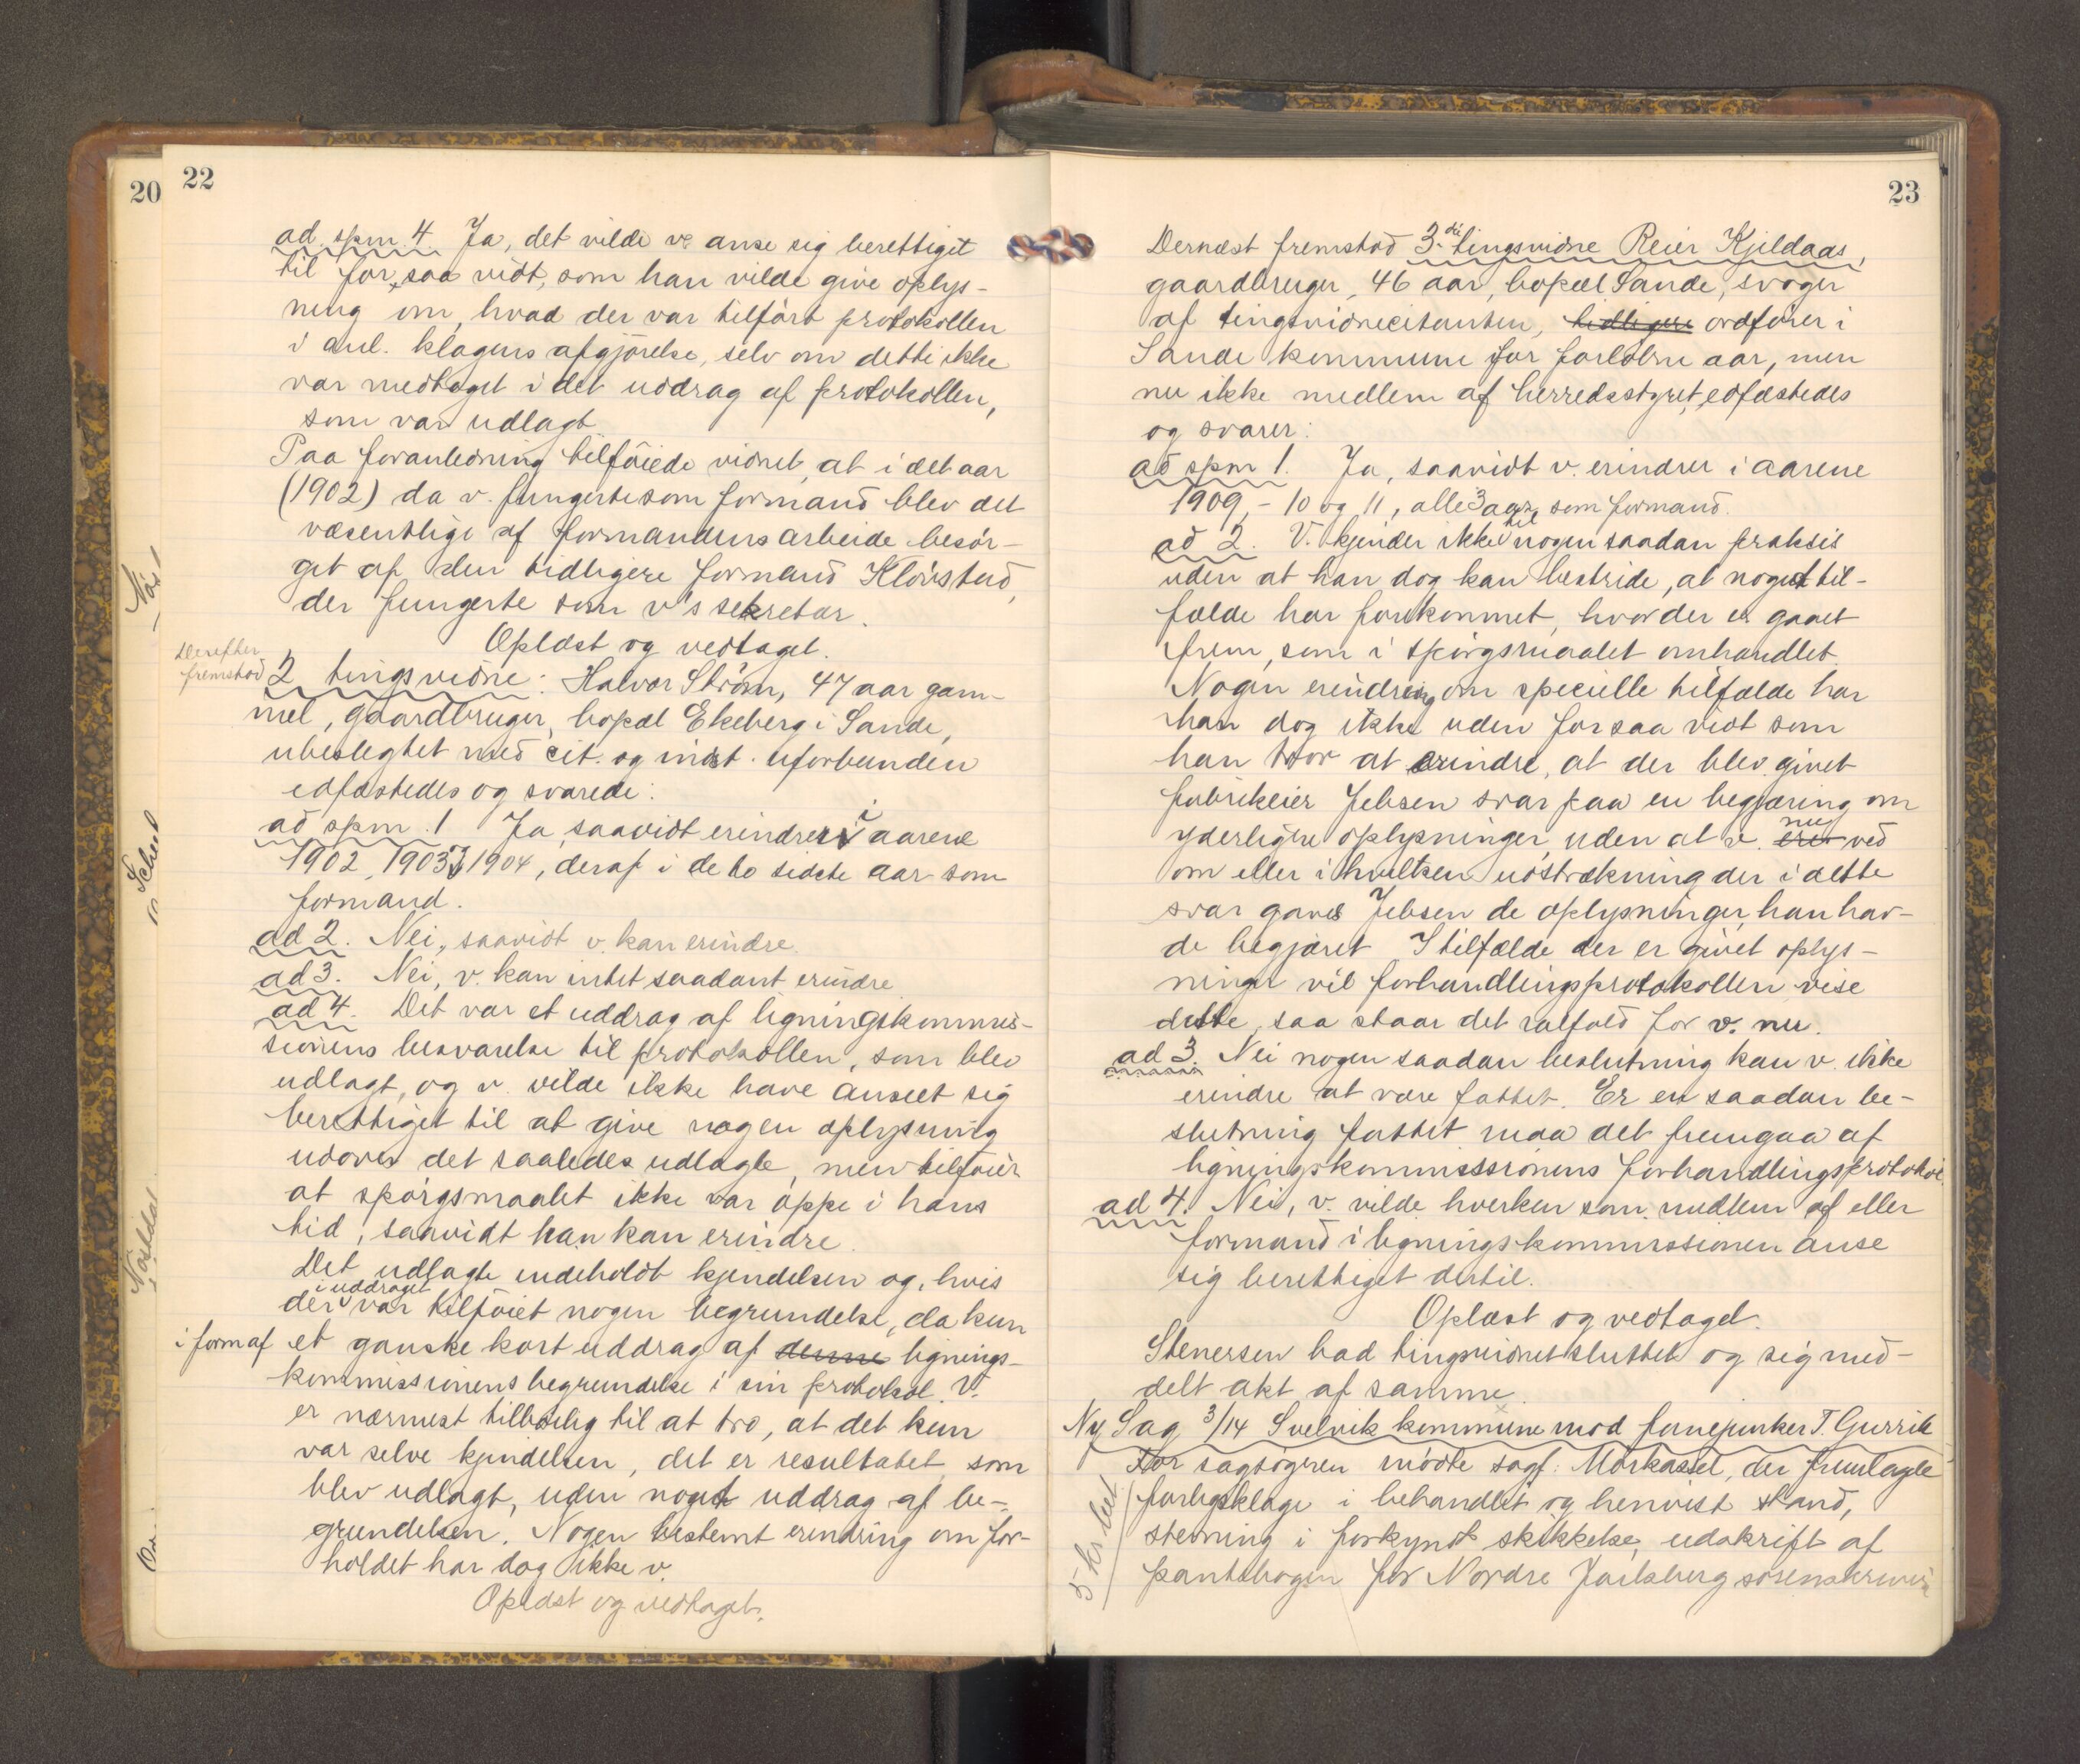 20
22
ad. spm. 4. Ja, det vilde v. anse sig berettiget
til for, saa vidt, som han vilde give oplys-
ning om, hvad der var tilført protokollen
i anl. klagens afgjørelse, selv om dette ikke
var medtaget i det uddrag af protokollen,
som var udlagt.
Paa foranledning tilføiede vidnet, at i det aar
(1902) da v. fungerte som formand blev det
væsentlige af formandens arbeide besør-
get af den tidligere formand Klövstad,
der fungerte som v's sekretær.
Oplæst og vedtaget.
Derefter
fremstod 2 tingsvidne: Halvor Strøm, 47 aar gam-
mel, gaardbruger, bopæl Ekeberg i Sande,
ubeslegtet med cit. og indst. uforbunden
edfæstedes og svarede:
ad spm. 1 Ja, saavidt erindres i aarene
1902, 1903 og 1904, deraf i de to sidste aar som
formand.
ad 2. Nei, saavidt v. kan erindre.
ad 3. Nei, v. kan intet saadant erindre.
ad 4. Det var et uddrag af ligningskommis-
sionens besvarelse til protokollen, som blev
udlagt, og v. vilde ikke have anseet sig
berettiget til at give nogen oplysning
udover det saaledes udlagte, men tilføier
at spørgsmaalet ikke var oppe i hans
tid, saavidt han kan erindre.
Det udlagte indeholdt kjendelsen og, hvis
der i uddraget var tilføiet nogen begrundelse, da kun
i form af et ganske kort uddrag af denne lignings-
kommissionens begrundelse i sin protokol. V.
er nærmest tilbøielig til at tro, at det kun
var selve kjendelsen, det er resultatet, som
blev udlagt, uden noget uddrag af be-
grundelsen. Nogen bestemt erindring om for-
holdet har dog ikke v.
Oplæst og vedtaget.
23
Dernæst fremstod 3.die tingsvidne Reier Kjeldaas,
gaardbruger, 46 aar, bopæl Sande, svoger
af tingsvidnecitanten, tidligere ordfører i
Sande kommune for forløbne aar, men
nu ikke medlem af herredsstyret, edfæstedes
og svarer:
ad spm 1. Ja, saavidt v. erindrer i aarene
1909, - 10 og 11, alle 3 aar som formand.
ad 2. V. kjender ikke til nogen saadan praksis
uden at han dog kan bestride, at noget til-
fælde har forekommet, hvor der er gaaet
frem, som i spørgsmaalet omhandlet.
Nogen erindring om specielle tilfælde har
han dog ikke uden forsaa vidt som
han tror at erindre, at der blev givet
fabrikeier Jebsen svar paa en begjæring om
yderligere oplysninger, uden at v. nu ved
om eller i hvilken udstrækning der i dette
svar gaves Jebsen de oplysninger, han hav-
de begjæret. I tilfælde der er givet oplys-
ninger vil forhandlingsprotokollen vise
dette, saa staar det ialfald for v. nu.
ad 3. Nei nogen saadan beslutning kan v. ikke
erindre at være fattet. Er en saadan be-
slutning fattet maa det fremgaa af
ligningskommissionens forhandlingsprotokol.
ad 4. Nei, v. vilde hverken som medlem af eller
formand i ligningskommissionen anse
sig berettiget dertil.
Oplæst og vedtaget.
Stenersen bad tingsvidnet sluttet og sig med-
delt akt af samme.
Ny Sag 3/14 Svelvik kommune mod fanejunker T. Gurrik
For sagsøgeren mødte sagf. Morkassel, der fremlagde
forligsklage i behandlet og henvist stand,
stevning i forkyndt skikkelse, udskrift af
pantebogen for Nordre Jarlsberg sorenskriveri
5 kr bet.